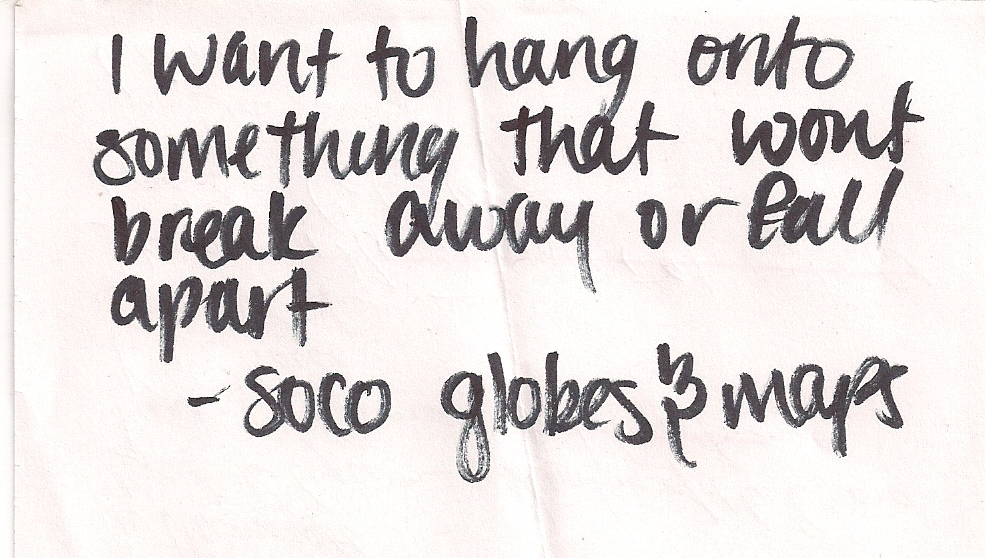 I want to hang onto
something that wont
break away or fall
apart
- soco globes & maps